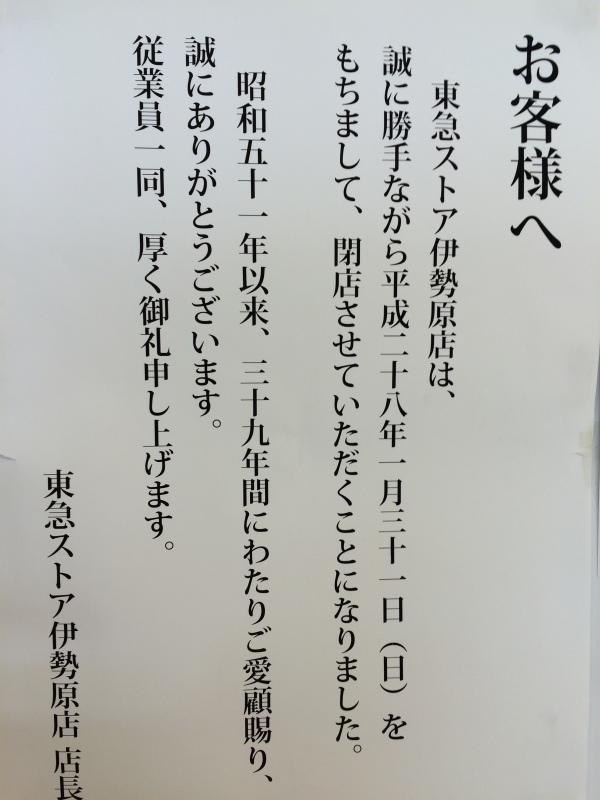 お客様へ
東急ストア伊勢原店は、
誠に勝手ながら平成二十八年一月三十一日（日）を
もちまして、閉店させていただくことになりました。
昭和五十一年以来、三十九年間にわたりご愛顧賜り、
誠にありがとうございます。
従業員一同、厚く御礼申し上げます。
東急ストア伊勢原店 店長